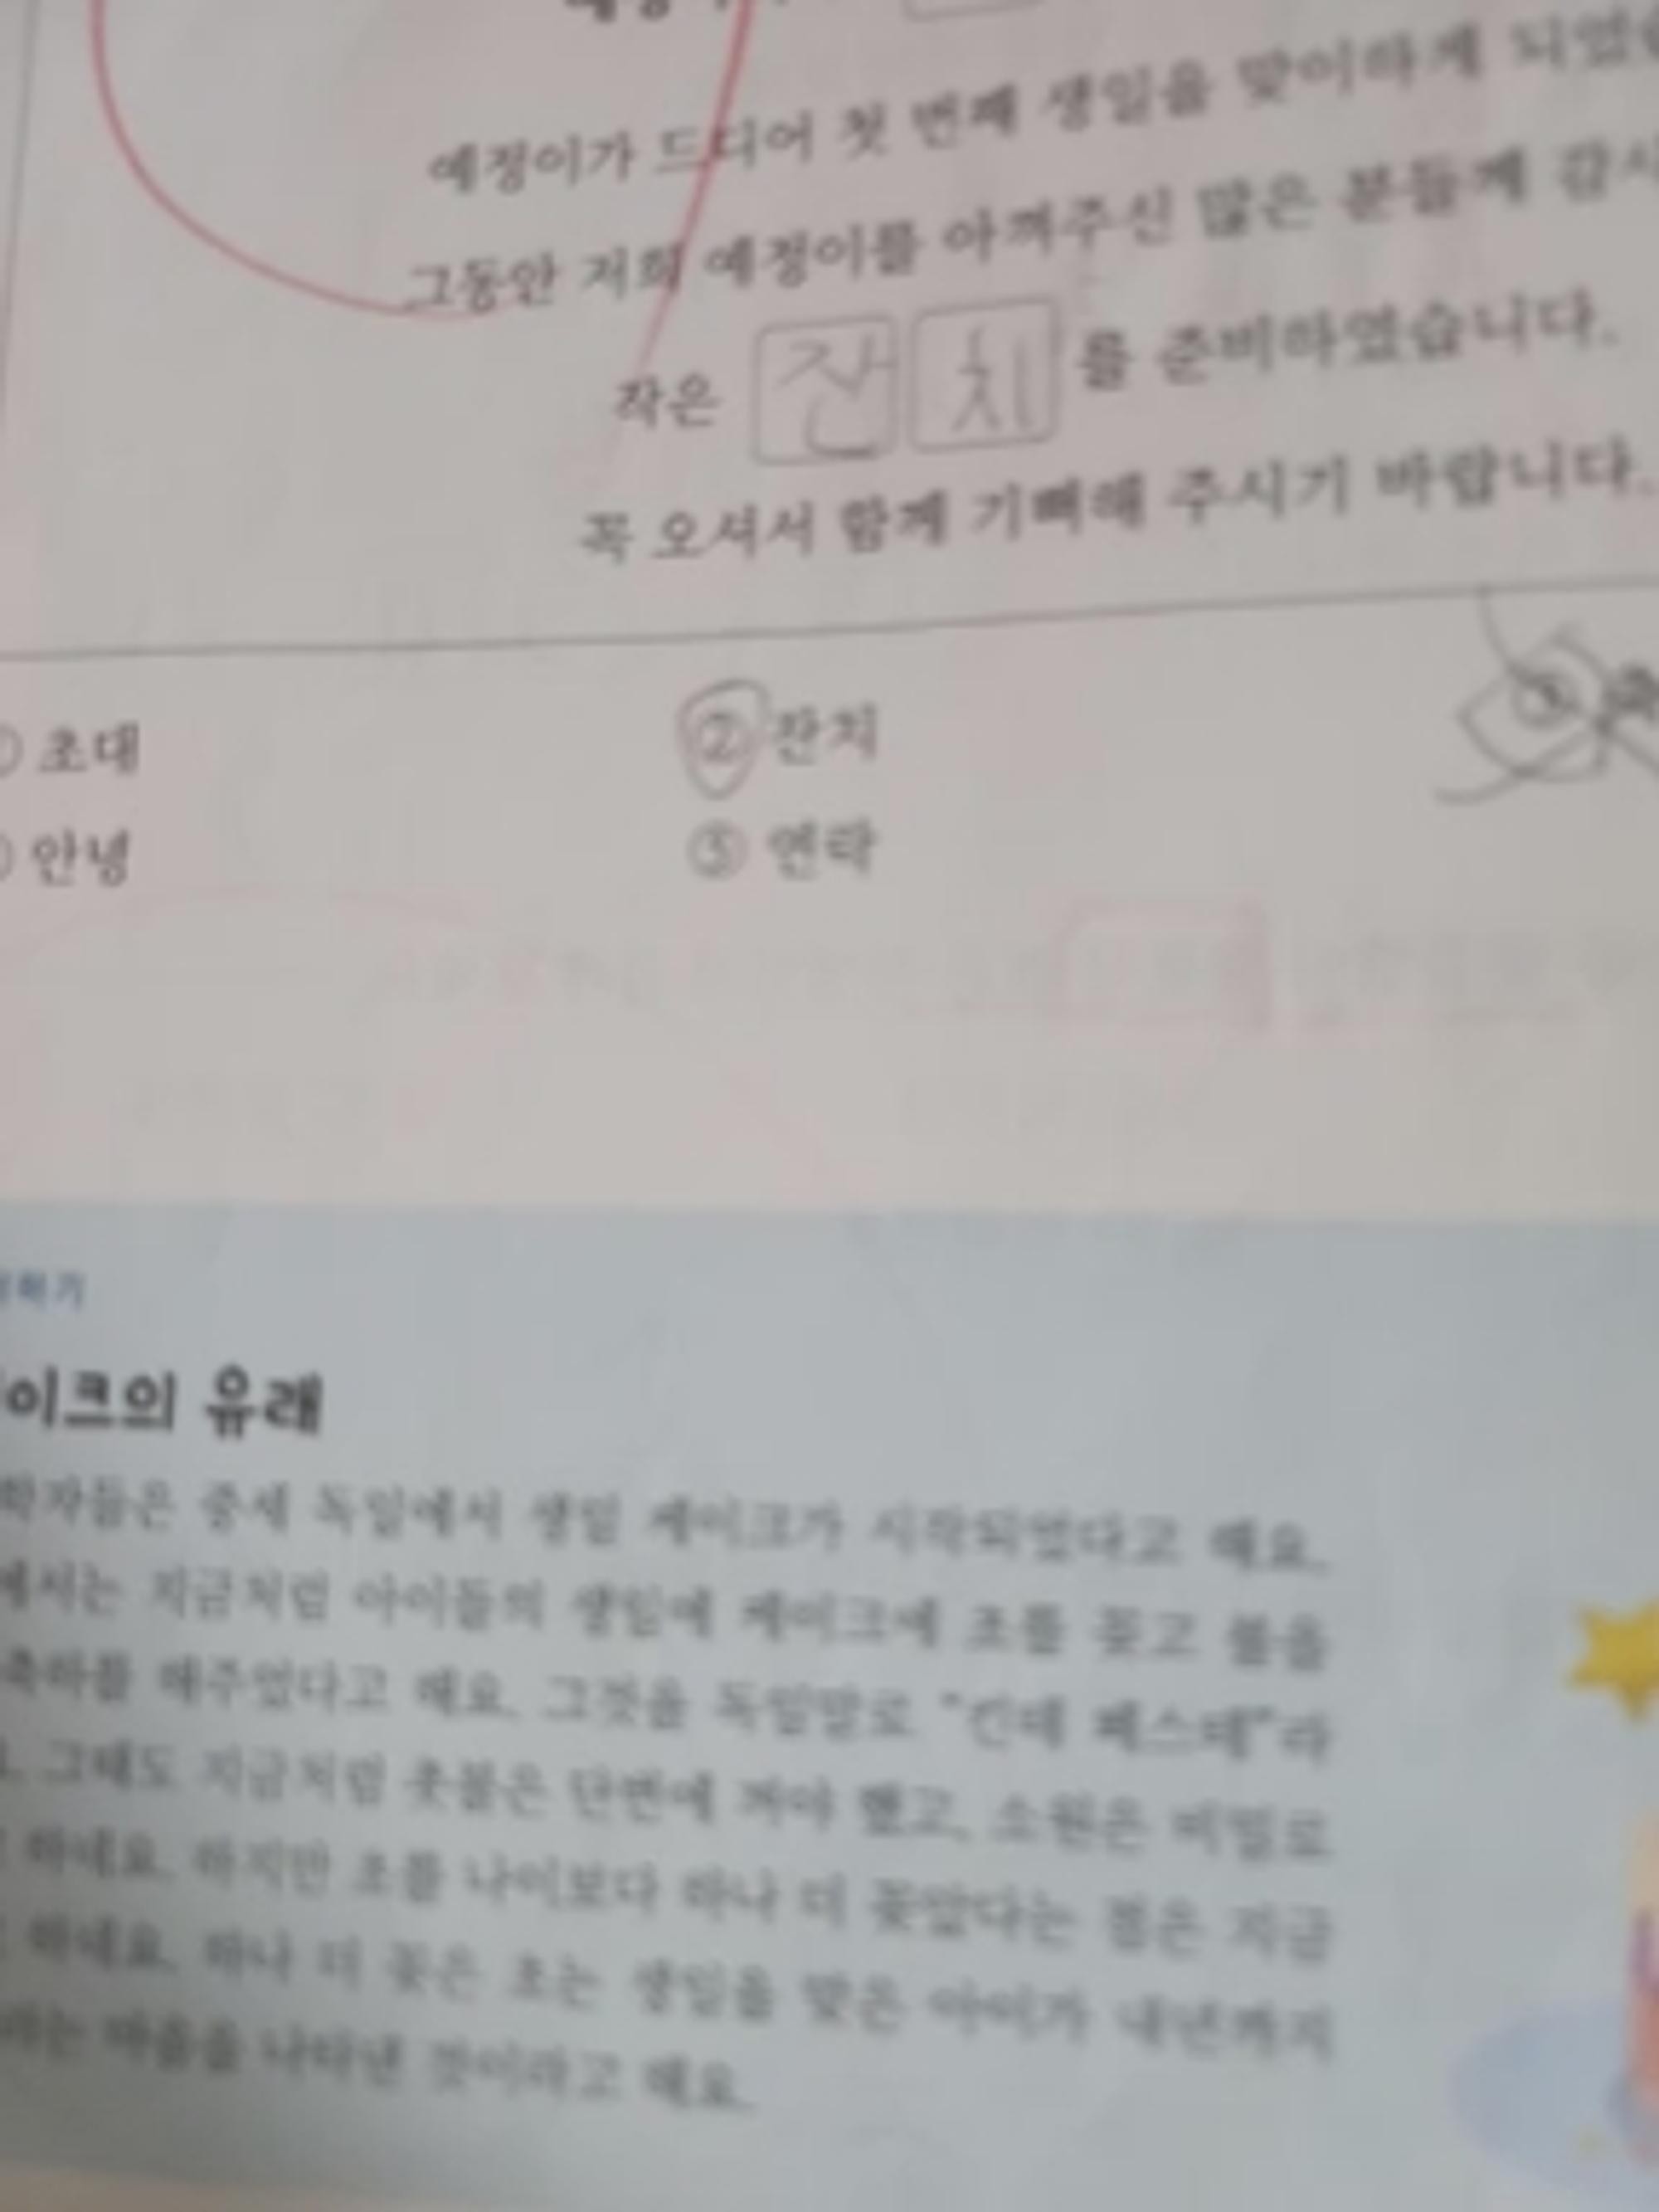 예정이가 드디어 첫 번째 생일을 맞이하게
그동안 저희 예정이를 아껴주신 많은 분들께
작은 잔치를 준비하였습니다.
꼭 오셔서 함께 기뻐해 주시기 바랍니다.
초대
② 잔치
③
안녕
⑤ 연락
하기
이크의 유래
학자들은 중세 독일에서 생일 케이크가 시작되었다고 해요.
에서는 지금처럼 아이들의 생일에 케이크에 초를 꽂고 불을
축하를 해주었다고 해요. 그것을 독일말로 "킨데 페스테"라
그때도 지금처럼 촛불은 단번에 꺼야 했고, 소원은 비밀로
하네요. 하지만 초를 나이보다 하나 더 꽂았다는 점은 지금
하네요. 하나 더 꽂은 초는 생일을 맞은 아이가 내년까지
라는 마음을 나타낸 것이라고 해요.